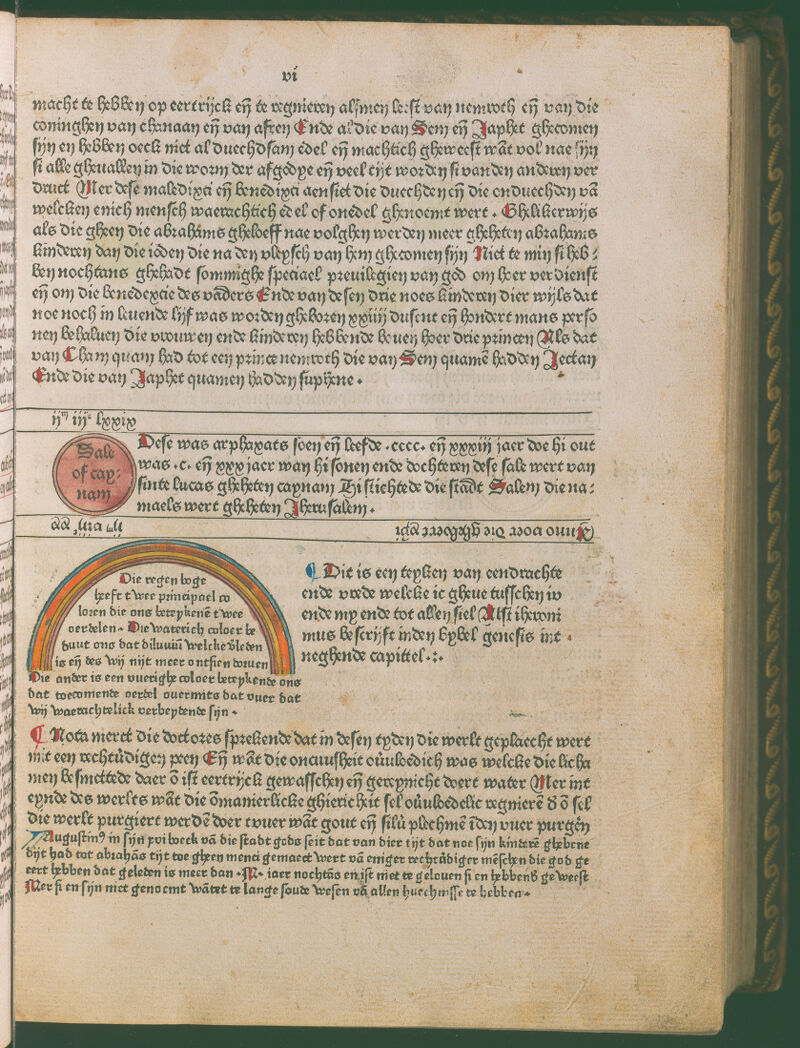 vi
macht te hebben op eertrijck eñ te regnieren alsmen leest van nemroth eñ van die
coninghen van chanaan eñ van asien Ende al die van Sem eñ Japhet ghecomen
sijn en hebben oeck niet al duechdsam edel eñ machtich gheweest wāt vol nae sijn
si alle gheuallen in die worm der afgodye eñ veel tijt worden si vanden anderen ver
druct Mer dese maledixci eñ benedixci aensiet die duechden eñ die onduechden vā
welcken enich mensch waerachtich edel of onedel ghenoemt wert. Ghelikerwijs
als die gheen die abrahams gheloeff nae volghen werden meer gheheten abrahams
kinderen dan die ioden die na den vleysch van hem ghecomen sijn Niet te min si heb⸗
ben nochtans ghehadt sommighe speciael preuilegien van god om hoer verdienst
eñ om die benedexcie des vāders Ende van desen drie noes kinderen dier wijls dat
noe noch in leuende lijf was worden gheboren xxiiij dusent eñ hondert mans perso
nen behaluen die vrouwen ende kinderen hebbende bouen hoer drie princen Als dat
van Cham quam had tot een prince nemroth die van Sem quamē hadden Jectan
Ende die van Japhet quamen hadden suphene.
ijm iijc lxxix
Sale
of cay⸗
nam
Dese was arphaxats soen eñ leefde .cccc. eñ xxxiij jaer doe hi out
was .c. eñ xxx jaer wan hi sonen ende dochteren dese sale wert van
sinte lucas gheheten caynam Hi stichtede die stadt Salem die na⸗
maels wert gheheten Jherusalem.
Anno voer die gheboert xpi
Die regen boge
heeft twee principael co
loren die ons beteykenē twee
oerdelen. Die waterich coloer be
duut ons dat diluuiū welcke vleden
is eñ des wij nijt meer ontsien doruen
Die ander is een vuerighe coloer beteykende ons
dat toecomende oerdel ouermits dat vuer dat
wij waerachtelick verbeydende sijn.
Dit is een teyken van eendrachte
ende vrede welcke ic gheue tusschen iv
ende my ende tot allen siel Alst iheroni
mus bescrijft inden bybel genesis int .
neghende capittel.:.
Nota merct die doctores sprekende dat in desen tyden die werlt geplaecht wert
mit een rechtūdigen peen Eñ wāt die oncuusheit oūuloedich was welcke die licha
men besmettede daer ō ist eertrijck gewasschen eñ gereynicht doert water Mer int
eynde des werlts wāt die ōmanierlicke ghiericheit sel oūuloedelic regnierē d ō sel
die werlt purgiert werdē doer tvuer wāt gout eñ siluṗ plechmē īden vuer purgēn
Augustinꝰ in sijn xvi boeck vā die stadt gods seit dat van dier tijt dat noe sijn kinderē ghebene
dijt had tot abrahās tijt toe gheen menci gemaect wert vā eniger rechtūdiger mēschen die god ge
eert hebben dat geleden is meer dan .M. iaer nochtās en ist niet te gelouen si en hebbens geweest
Mer si en sijn niet genoemt wātet te lange soude wesen vā allen huechnisse te hebben.